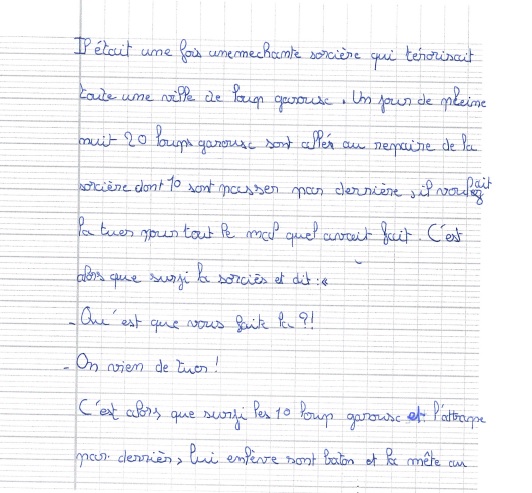 Il était une fois unemechante sorcière qui térorisait
toute une ville de loup garousc. Un jour de pleine
nuit 20 loups garousc sont allér au repaire de la
sorcière dont 10 sont passer par dernière, il voulait
la tuer pour tout le mal quel avait fait. C'est
alors que surgi la sorciès et dit : «
- Qu'est que vous faite la ?!
- On vien de tuer !
C'est alors, que surgi les 10 loup garousc et l'attrape
par derrièr, lui enlève sont baton et la mête au